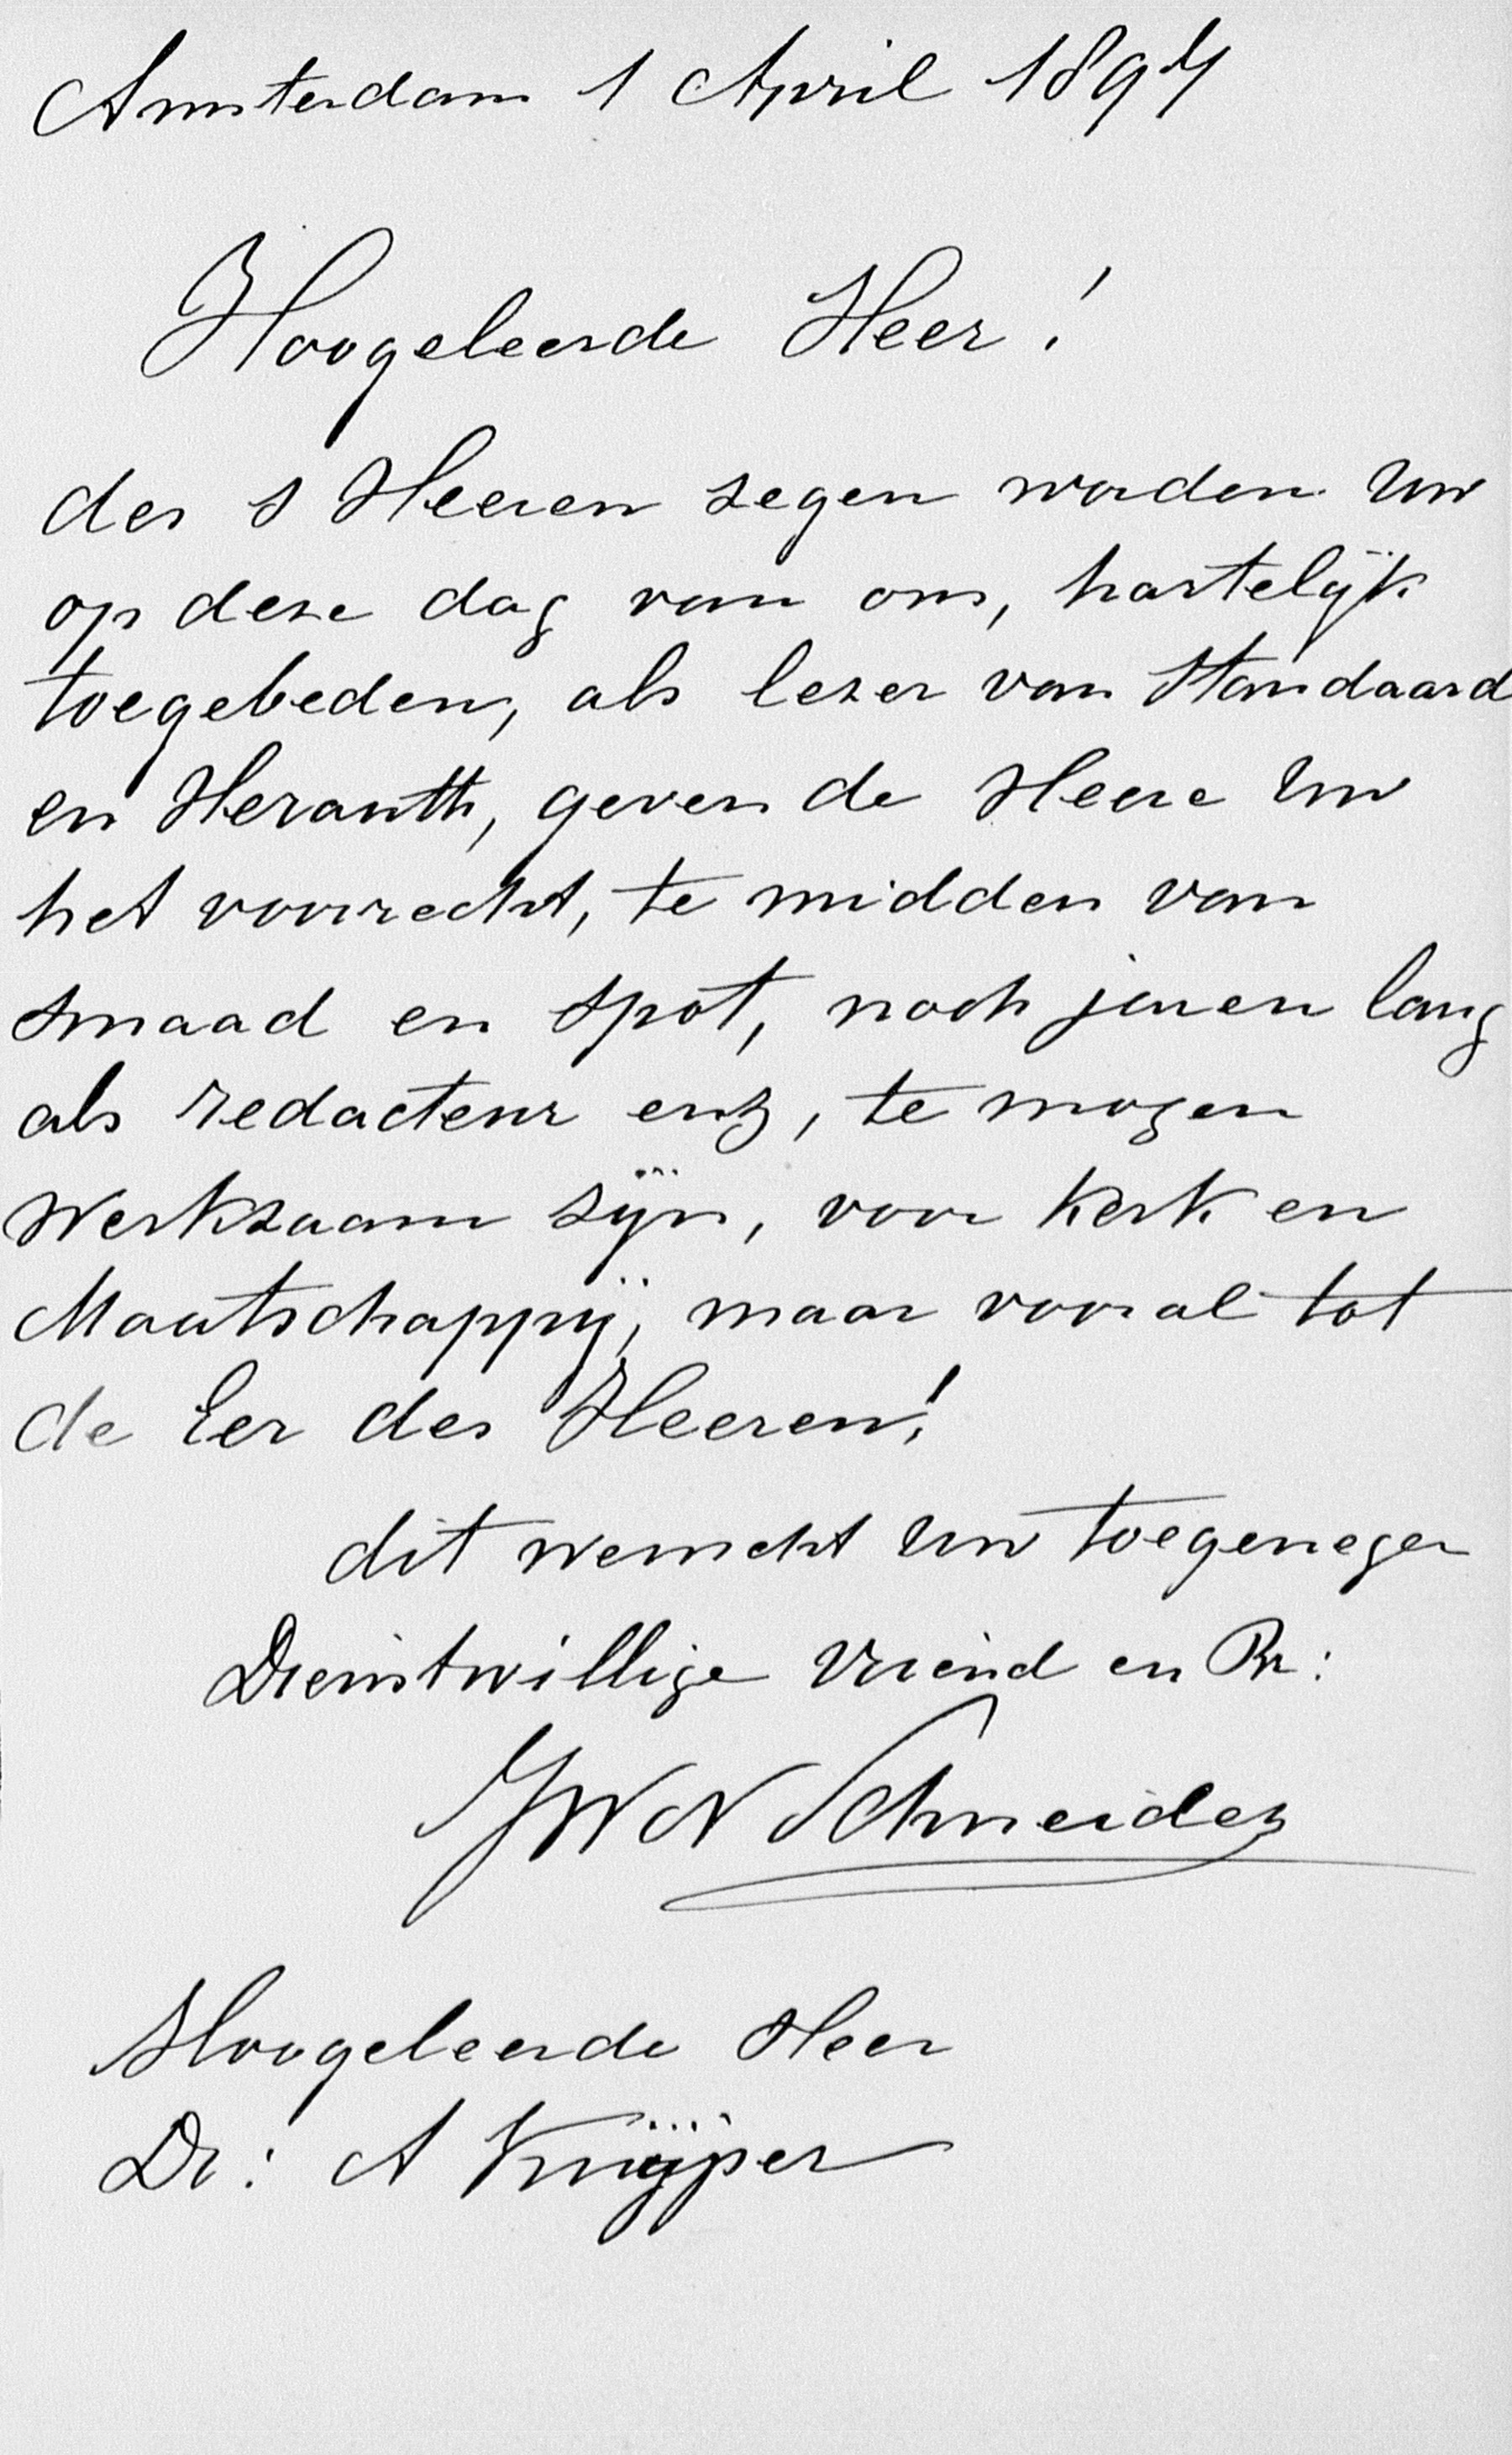 Amsterdam 1 April 1897
Hoogeleerde Heer!
des s Heeren zegen worden Uw
op deze dag van ons, hartelijk
toegebeden, als lezer van Standaard
en Herauth, geven de Heere Uw
het voorrecht, te midden van
smaad en spot, noch jaren lang
als redacteur enz, te mogen
Werkzaam zijn, voor Kerk en
Maatschappij, maar vooral tot
de Eer des Heeren!
dit wenscht Uw toegenegen
Dienstwillige Vriend en Br:
JWN Schneider
Hoogeleerde Heer
Dr: A Kuijper